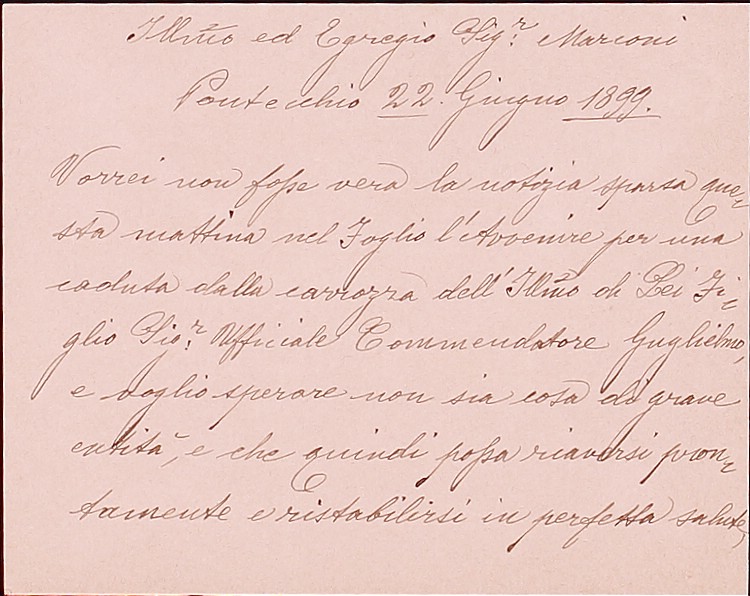 Illmo ed Egregio Sigr. Marconi
Pontecchio 22. Giugno 1899.
Vorrei non fosse vera la notizia sparsa que-
sta mattina nel Foglio l'Avvenire per una
caduta dalla carrozza dell'Illmo di Lei Fi-
glio Sigr. Ufficiale Commendatore Guglielmo,
e voglio sperare non sia cosa di grave
entità, e che quindi possa riaversi pron-
tamente e ristabilirsi in perfetta salute,